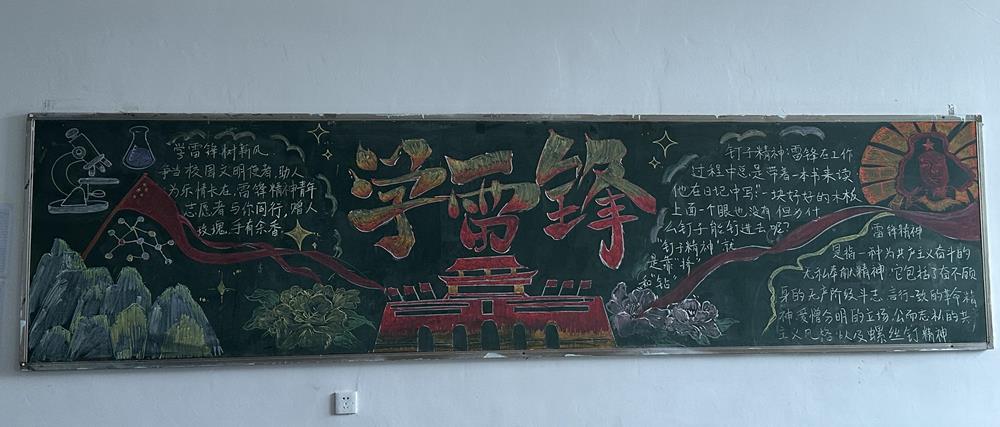 学雷锋树新风
争当校园文明使者,助人
为乐情长在,雷锋精神青年
志愿者与你同行,赠人
玫瑰,手有余香。
学雷锋
钉子精神:雷锋在工作
过程中总是带着一本书来读
他在日记中写:"一块好好的木板
上面一个眼也没有 但为什
么钉子能钉进去呢?
"钉子精神"就
是靠"挤"
和"钻"
雷锋精神
是指一种为共产主义奋斗的
无私奉献精神 它包括了奋不顾
身的无产阶级斗志 言行一致的革命精
神 爱憎分明的立场 公而忘私的共
主义风格 以及螺丝钉精神